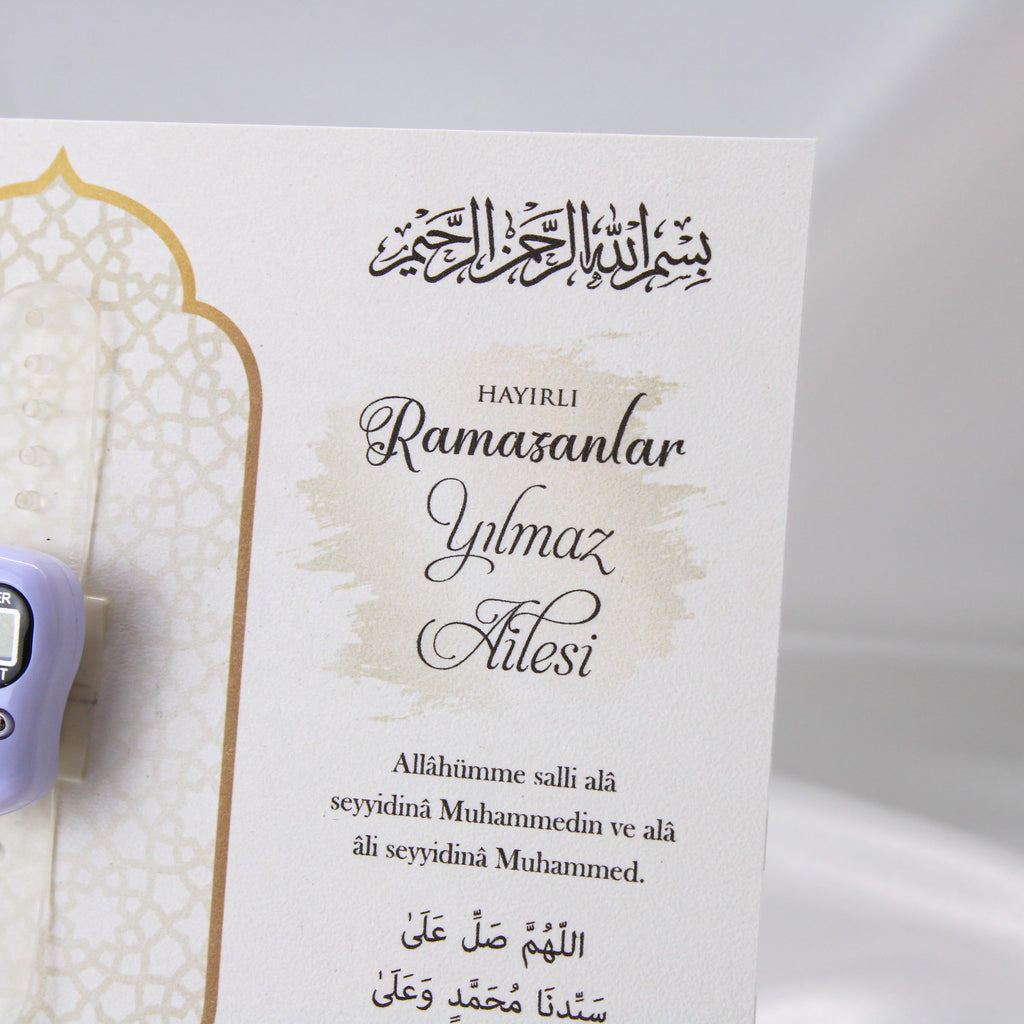 بِسْمِ اللهِ الرَّحْمٰنِ الرَّحِيْمِ
HAYIRLI
Ramazanlar
Yılmaz
Ailesi
Allâhümme salli alâ
seyyidinâ Muhammedin ve alâ
âli seyyidinâ Muhammed.
اللّٰهُمَّ صَلِّ عَلَىٰ
سَيِّدِنَا مُحَمَّدٍ وَعَلَىٰ